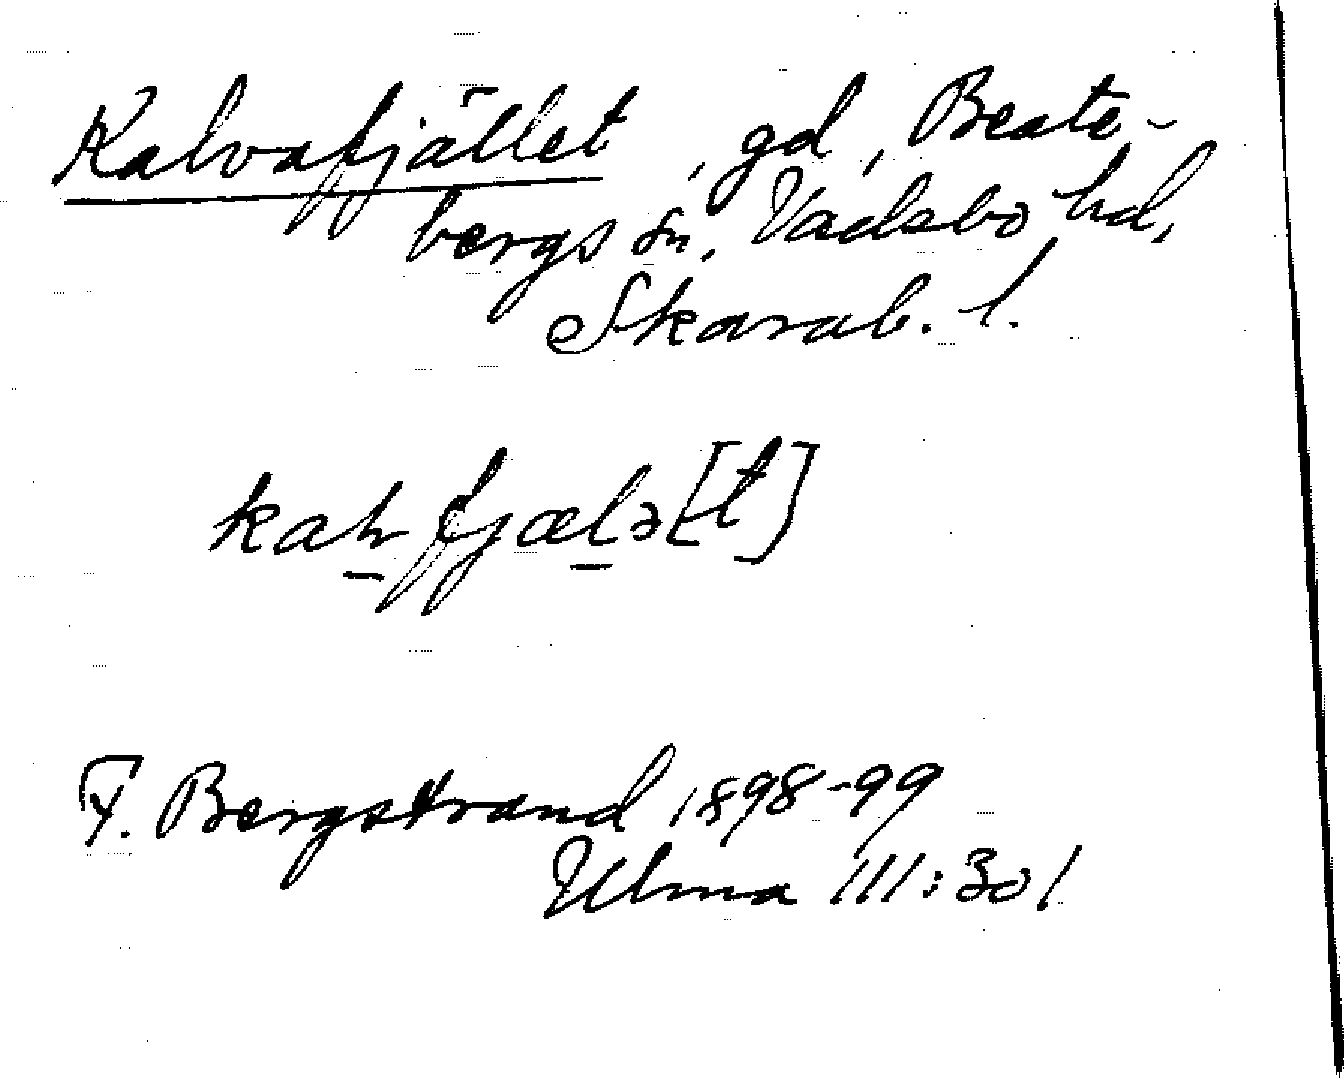 Kalvafjället, gd, Beate-
bergs sn, Vadsbo hd,
Skarab. l.
fjælə[t]
F. Bergstrand 1898-99
Ulma 111:301